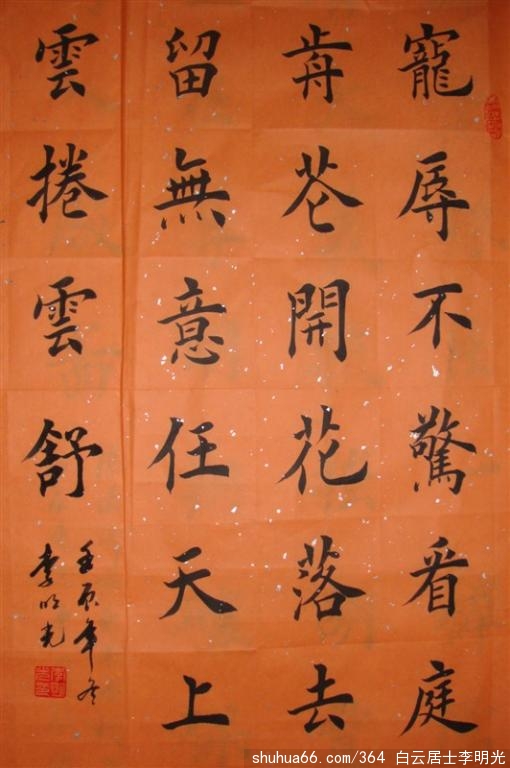 寵辱不驚看庭
歬芲開花落去
留無意任天上
雲捲雲舒
壬辰年冬
李明光
shuhua66.com/364 白云居士李明光